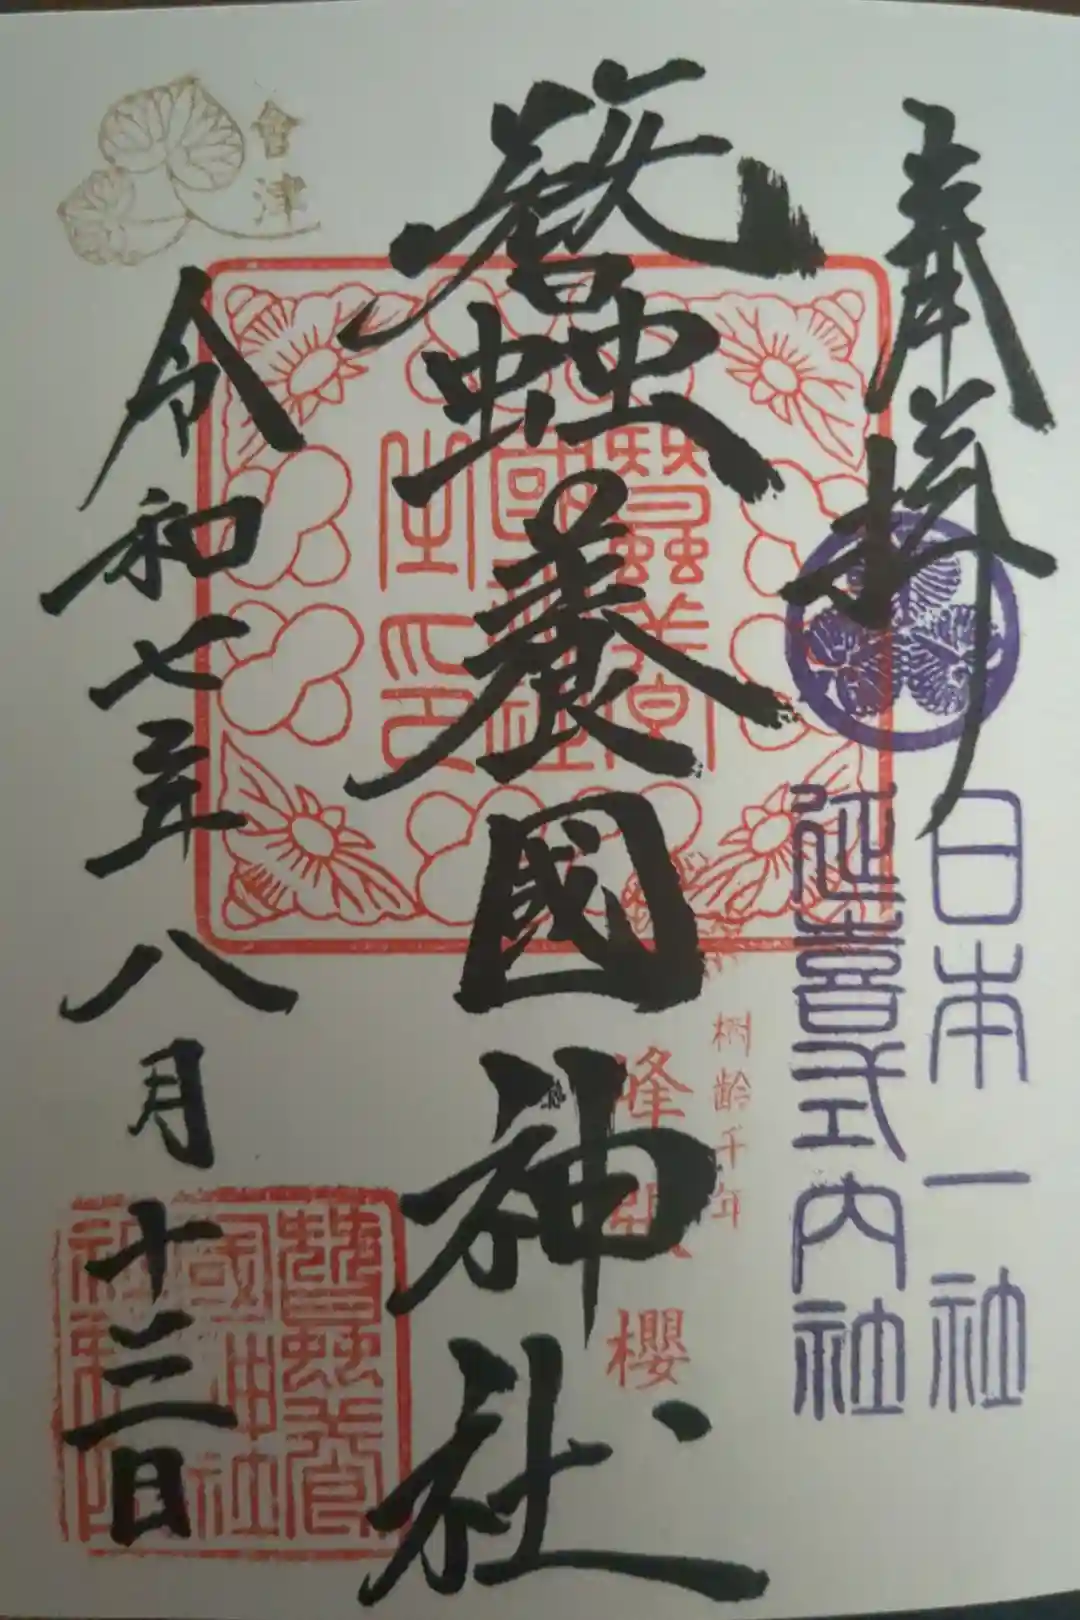 奉拝
日本一社
延喜式内社
樹齢千年
峰張櫻
蠶養國神社
會津
令和七年八月十三日